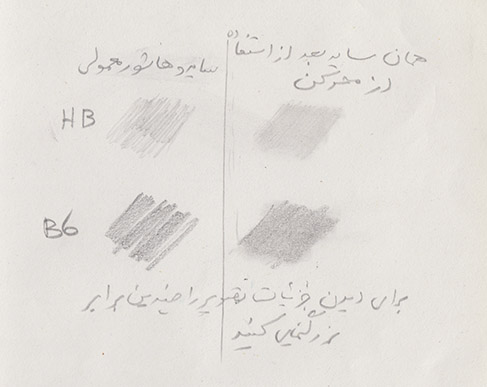 همان سایه بعد از استفاده
از محوکن
سایه و هاشور معمولی
HB
B6
برای دیدن جزئیات تصویر را چندین برابر
بزرگنمایی کنید